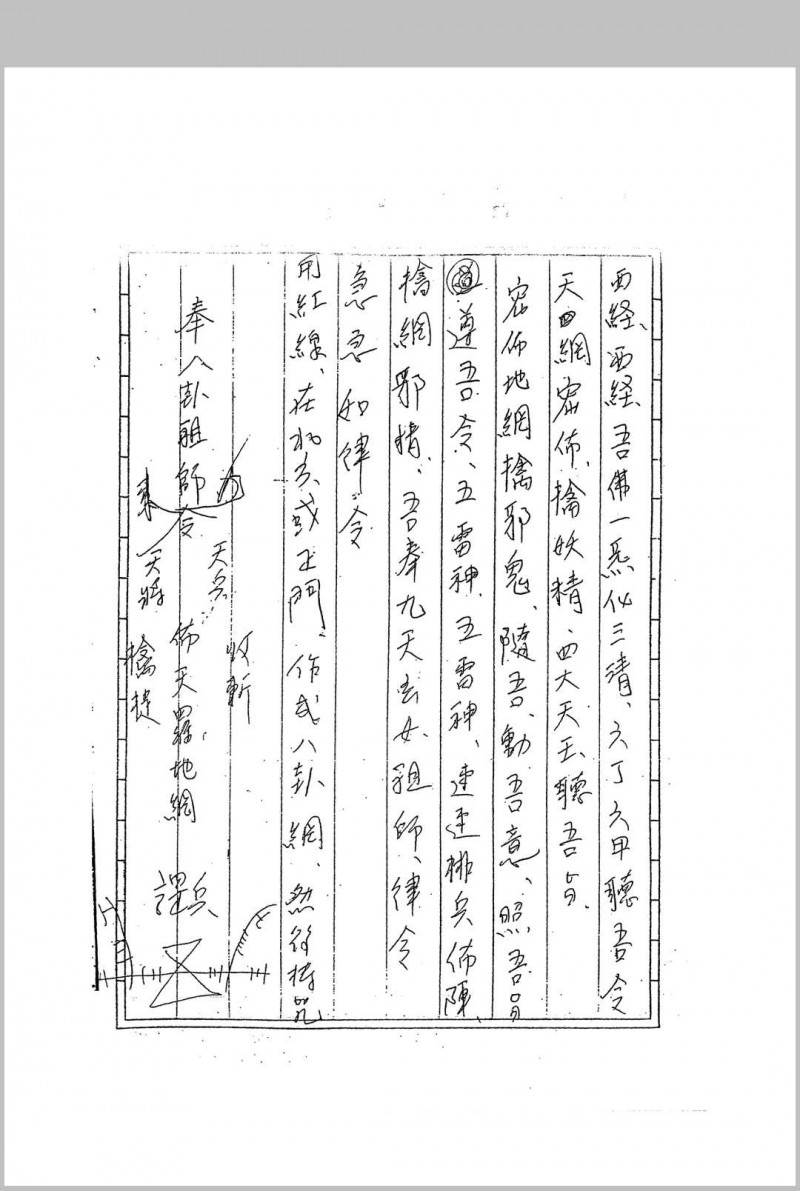 西経、西経吾佛一炁化三清、六丁六甲聽吾令
天罡網密佈、擒妖精、四大天王聽吾旨、
密佈地網擒邪鬼、隨吾、動吾意、照吾旨
遵吾令、五雷神、五雷神、速速排兵佈陣、
擒網邪精、吾奉九天玄女祖師、律令
急急如律令
用紅線、在 或正門、作成八卦網、然後持咒
奉八卦祖師令
天兵 收斬
天將 擒捉
佈天羅地網
兵